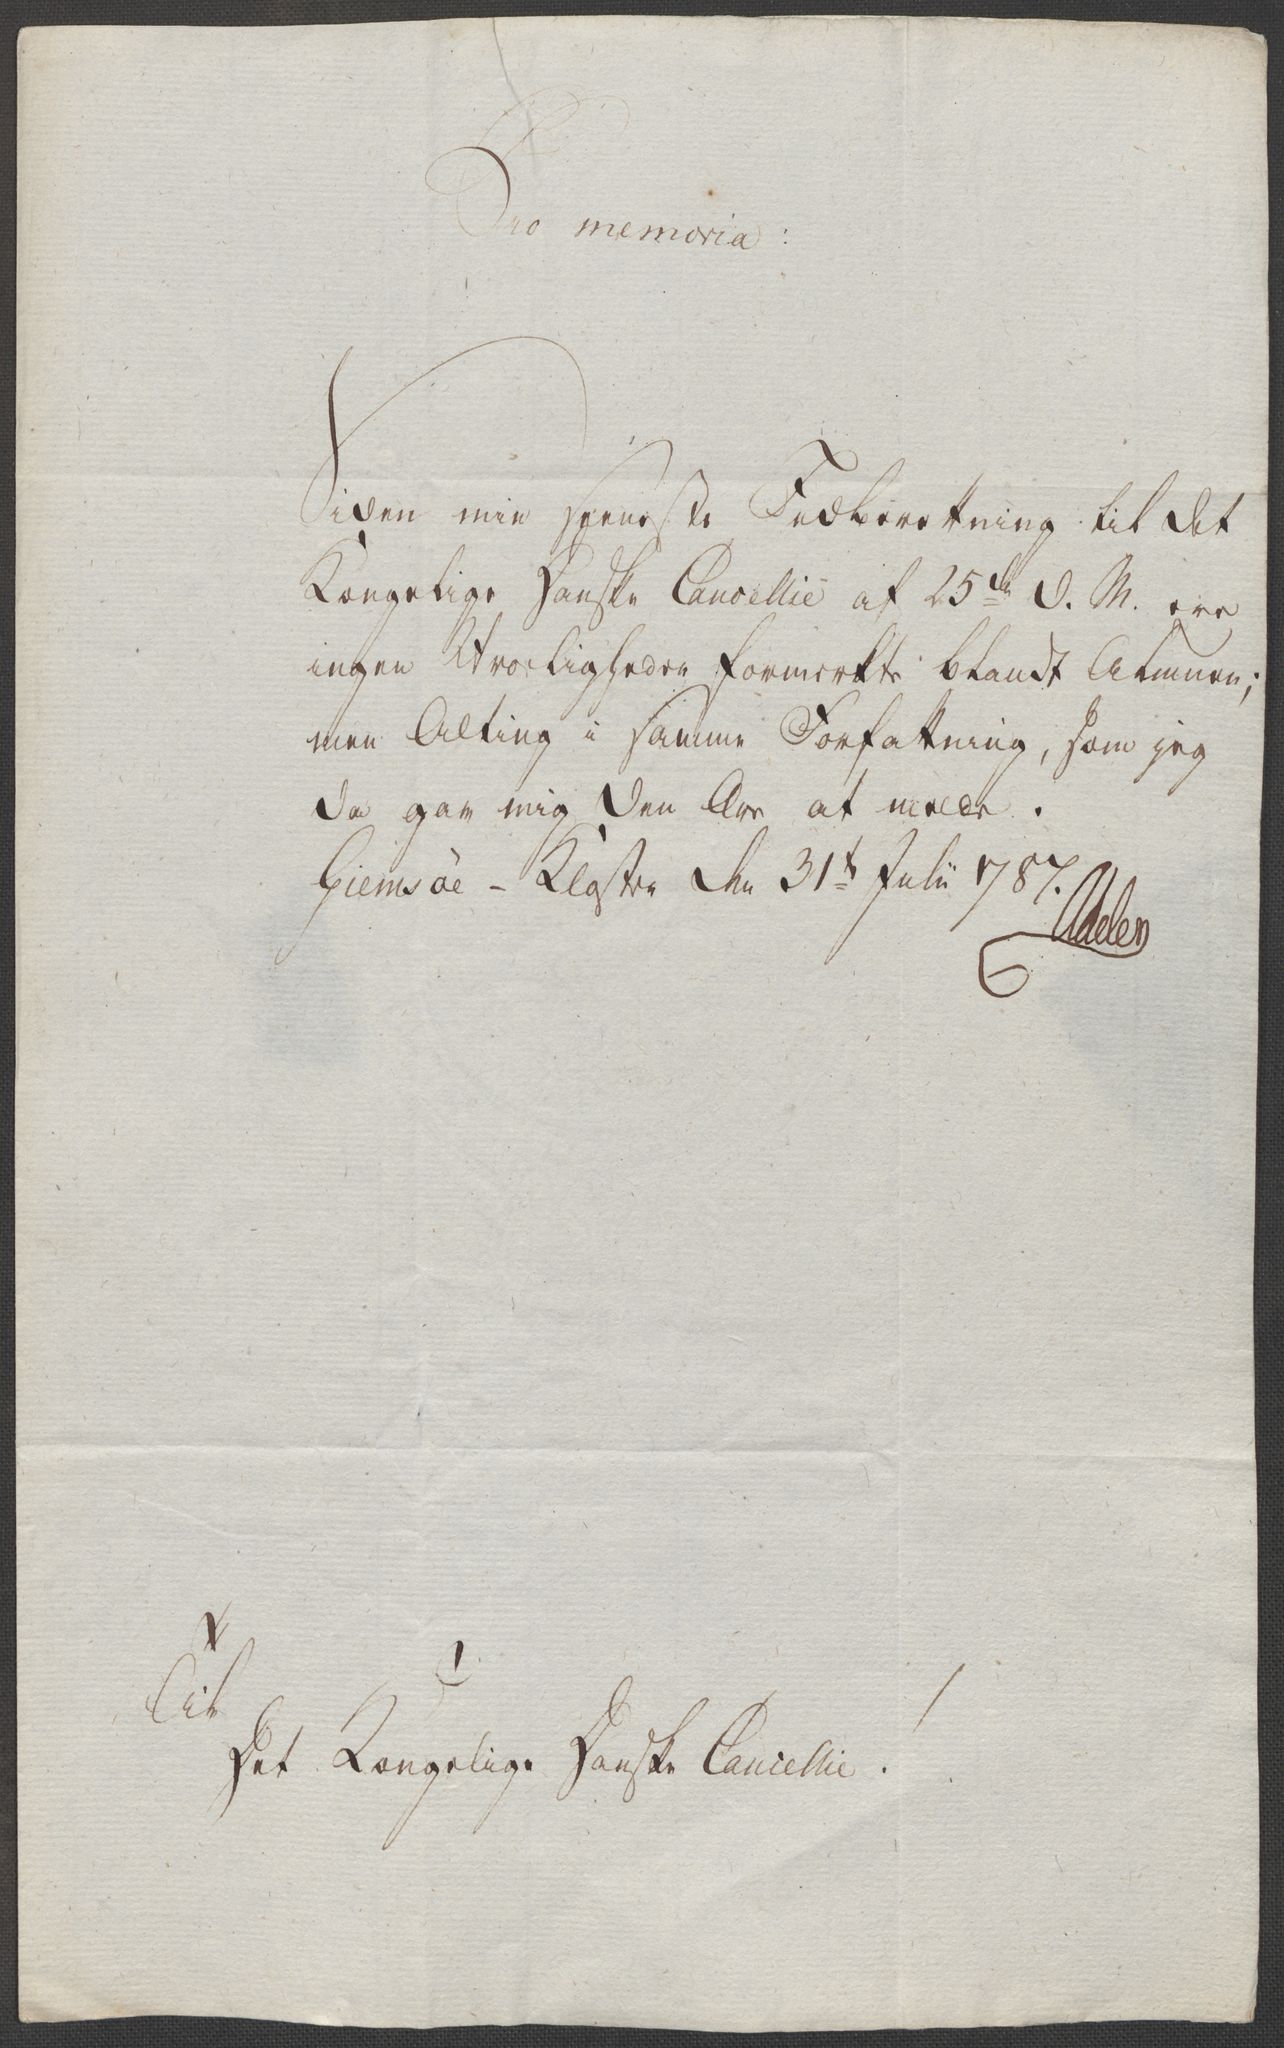 Pro memoria:
Siden min seeneste Indberetning til det
Kongelige Danske Cancellie af 25de d. M. ere
ingen Uroeligheder formerkte blandt Almuen;
men Alting i samme Forfatning, som jeg
da gav mig den Ære at melde.
Giemsöe-Kloster den 31te Julii 1787.
Adeler
Til
Det Kongelige Danske Cancellie.